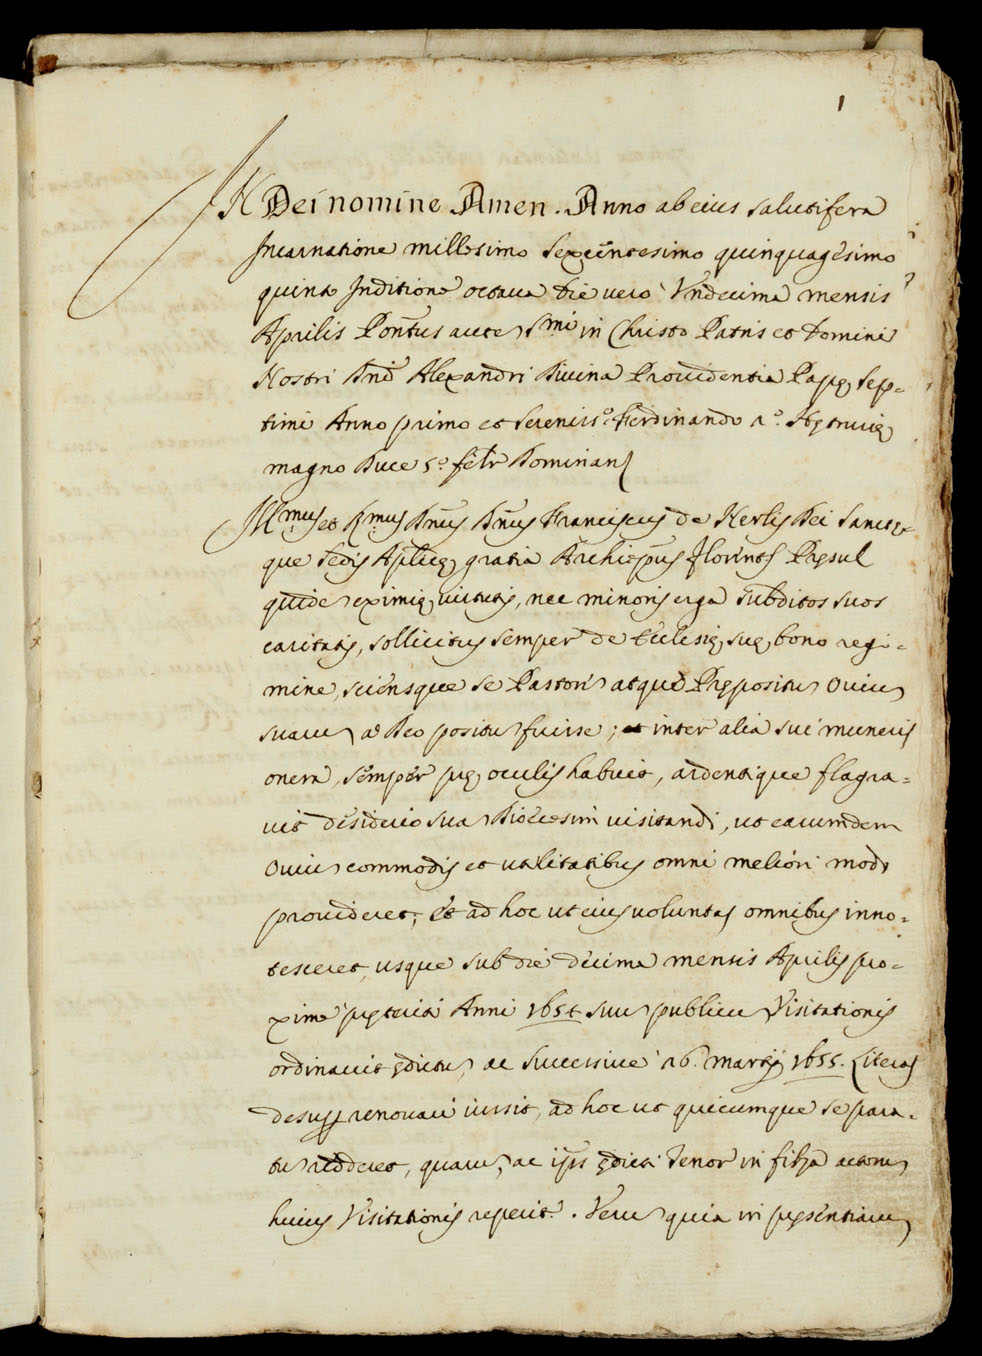 1
IN Dei nomine Amen. Anno ab eius salutifera
Incarnatione millesimo sexcentesimo quinquagesimo
quinto Inditione octava die vero Undecima mensis
Aprilis Pontus aute Smi in Christo Patris et Domini
Nostri Dni Alexandri Divina Providentia Papę Sep-
timi Anno primo et Sereniss.o Ferdinando 2.o Hetrurię
magno Duce 5.o felr Dominan
Illmus et Rmus Dnus Dnus Franciscus de Nerlis Dei Sanctę-
que Sedis Aplicę gratia Archiepus Florints Pręsul
quide eximię virtutis, nec minoris erga subditos suos
caritatis, sollicitus semper de Ecclesię suę bono regi-
mine, sciensque se Pastore atque Prępositu Oviu
suaru a Deo positu fuisse; et inter alia sui muneris
onera, semper pre oculis habuit, ardentique flagra-
vit desiderio sua Diocesim visitandi, ut earumdem
Oviu commodis et utilitatibus omni meliori modo
provideret; Et ad hoc ut eius voluntas omnibus inno-
tesceret, usque sub die decima mensis Aprilis pro-
xime pręteriti Anni 1654 suu publicu Visitationis
ordinavit ędictu, ac successive 26. martij 1655. Literas
desup renovari iussit, ad hoc ut quicumque se para-
tu redderet, quaru, ac ipsis ędicti tenor in filza actoru
huius Visitationis reperit. Veru quia in pręsentiaru